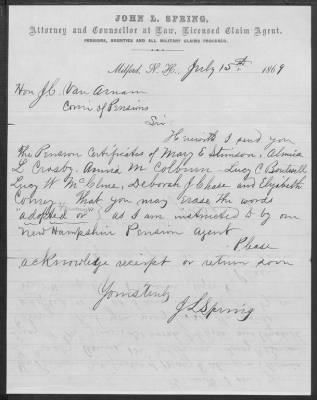 JOHN L. SPRING,
Attorney and Counsellor at Law, Licensed Claim Agent.
PENSIONS, BOUNTIES AND ALL MILITARY CLAIMS PROCURED.
Milford, N. H., July 15th 1869
Hon J.C. Van Arnam
Com'r of Pensions
Sir
Herewith I send you
the Pension Certificates of Mary E Stimson, Almira
L Crosby, Anna M Colburn Lucy C Boutwell
Lucy W. McClure, Deborah J Chase and Elizabeth
that you may erase the words
"adopted or" as I am instructed to by our
New Hampshire Pension agent
Please
acknowledge receipt or return soon
Yours truly
J. L. Spring